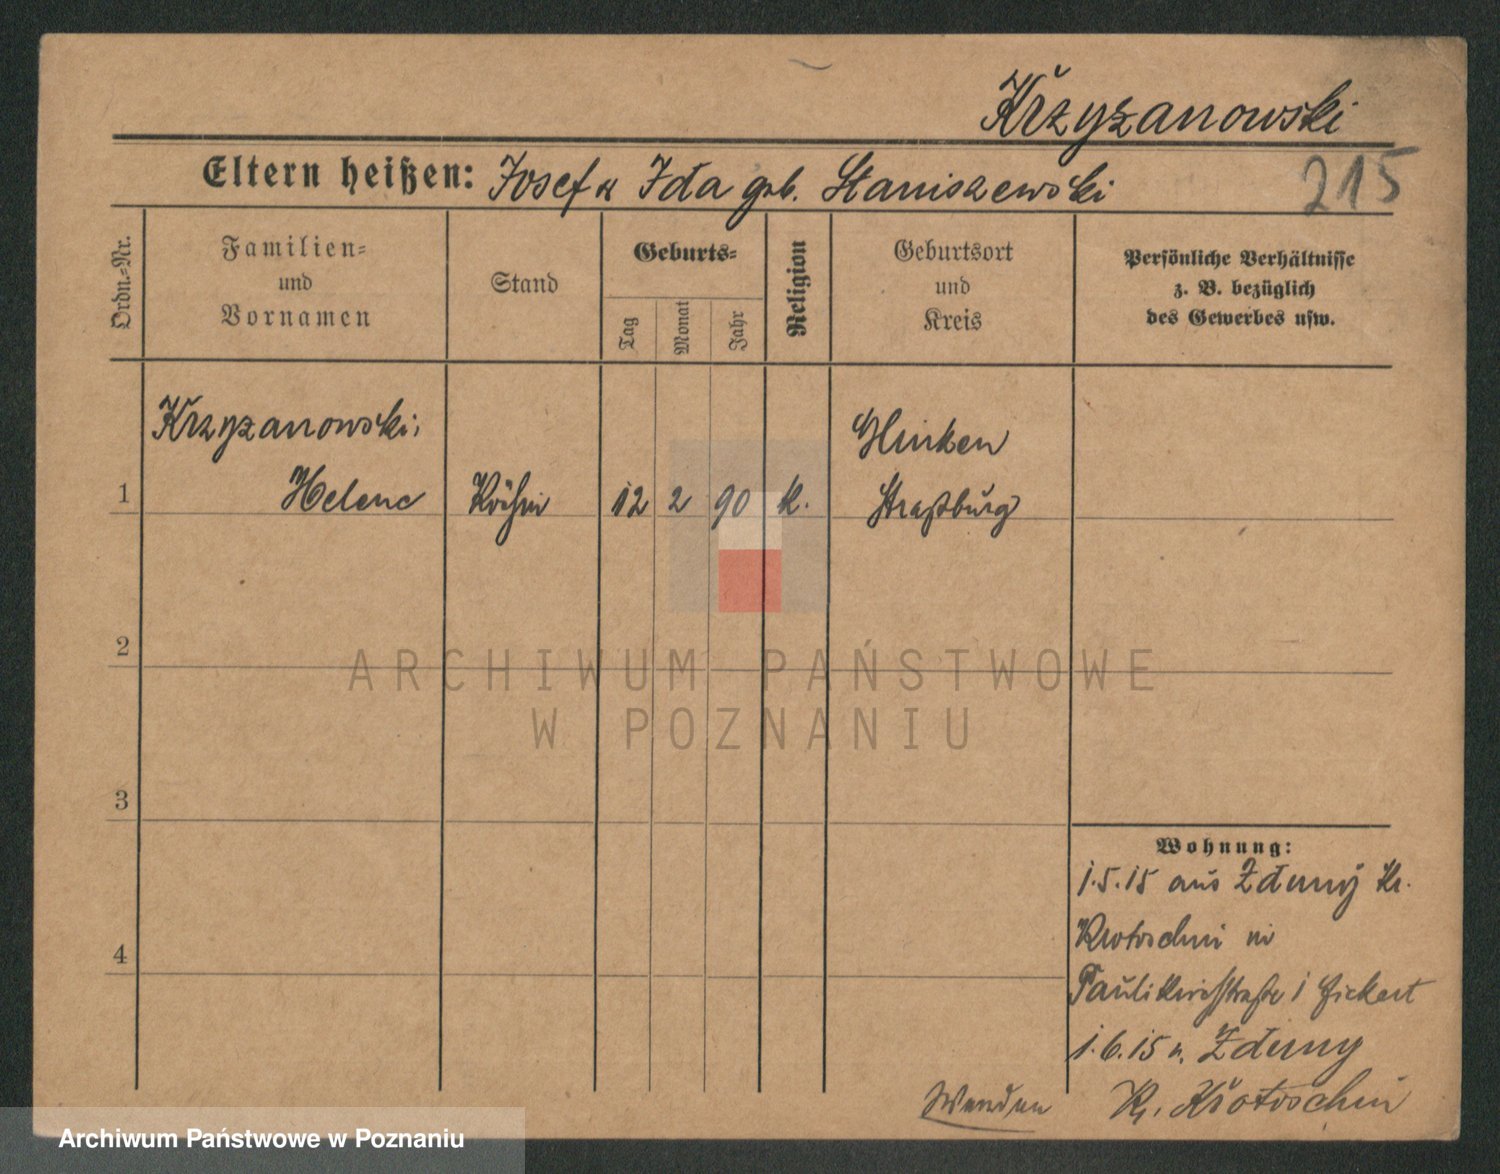 Krzyzanowski
Eltern heißen: Josef u Ida geb. Staniszewski
215
Ordn.=Nr.
Familien=
und
Vornamen
Stand
Geburts=
Tag
Monat
Jahr
Religion
Geburtsort
und
Kreis
Persönliche Verhältnisse
z. B. bezüglich
des Gewerbes usw.
Krzyzanowski,
1 Helene Köchin 12 2 90 k.
Glinken
Straßburg
2
3
4
Wohnung:
1.5.15 aus Zduny Kr.
Krotoschin in
Paulikirchstraße 1 Fickert
1.6.15 n. Zduny
Kr. Krotoschin
Wenden
ARCHIWUM PAŃSTWOWE
W POZNANIU
Archiwum Państwowe w Poznaniu